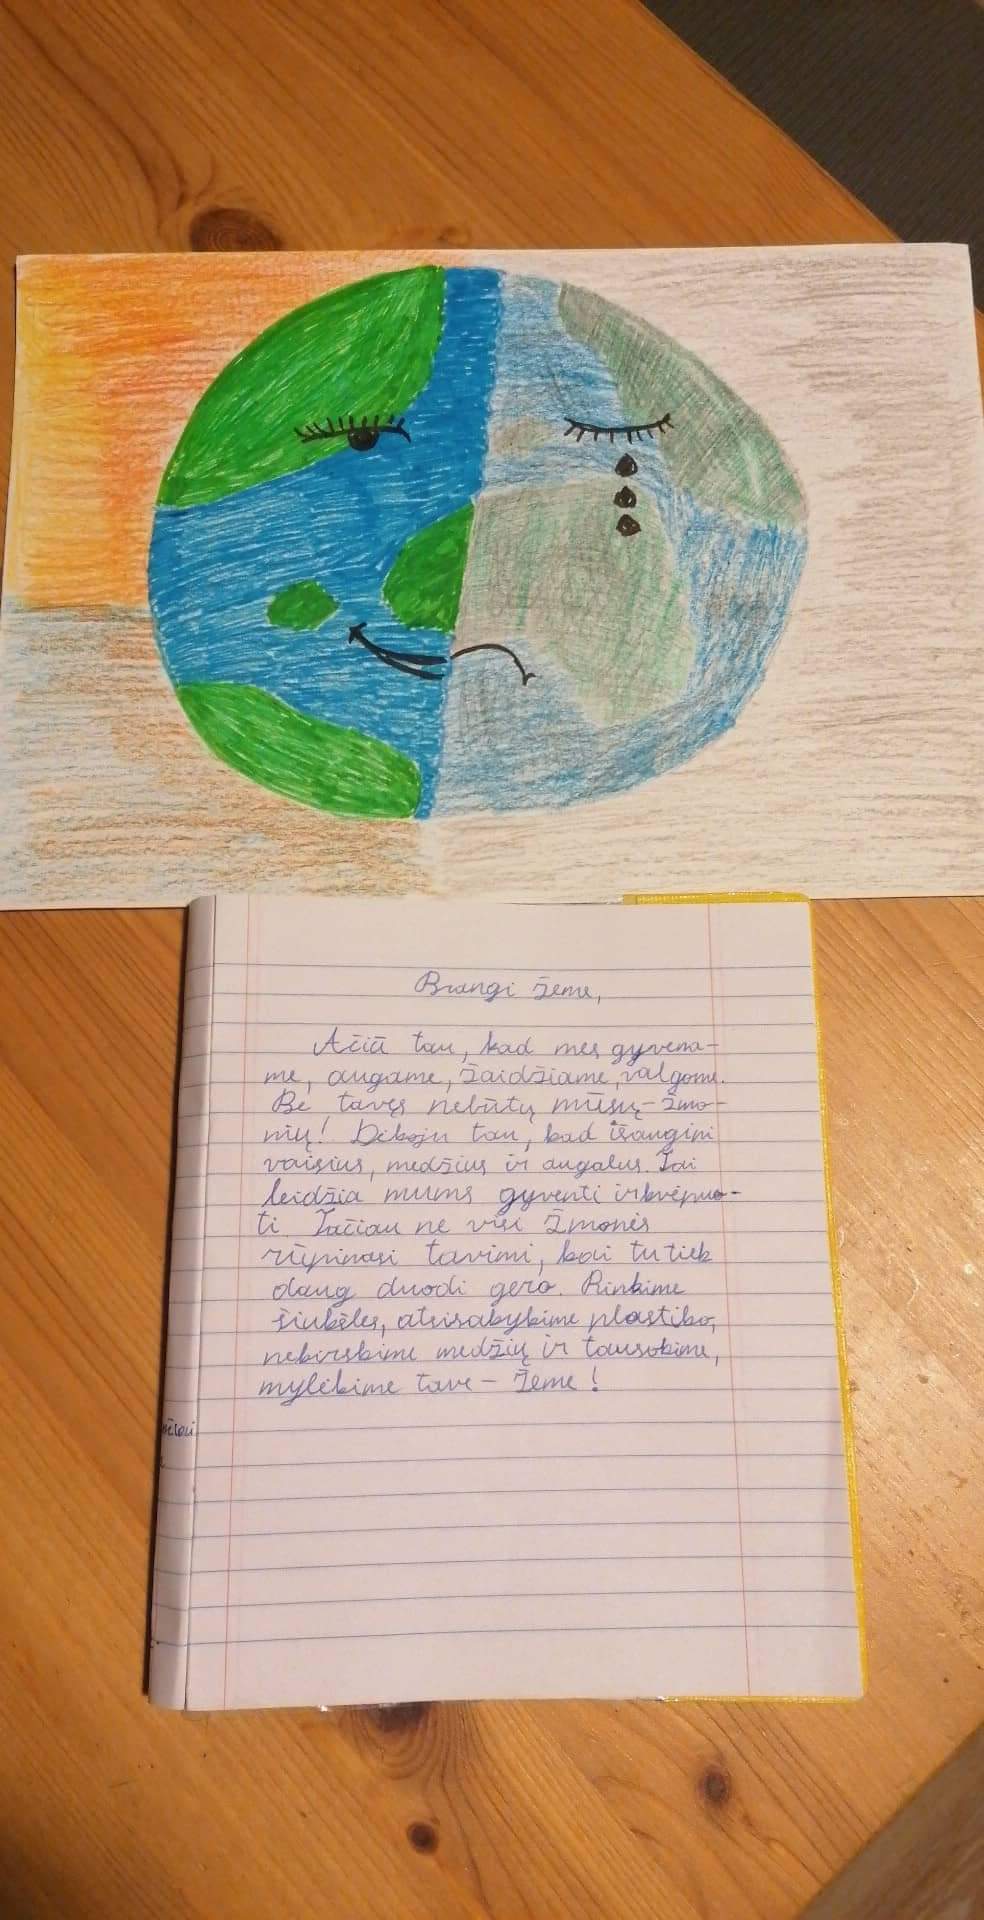 Brangi žeme,
Ačiū tau, kad mes gyvena-
me, augame, žaidžiame, valgome.
Be tavęs nebūtų mūsų-žmo-
nių! Dėkoju tau, kad išaugini
vaisius, medžius ir augalus. Tai
leidžia mums gyventi ir kvėpuo-
ti. Tačiau ne visi žmonės
rūpinasi tavimi, kai tu tiek
daug duodi gero. Rinkime
šiukšles, atsisakykime plastiko,
nekirskime medžių ir tausokime,
mylėkime tave - Žeme!